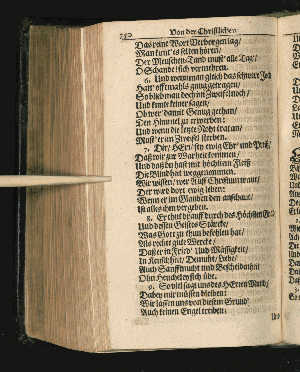 750 Von der Christlichen
Das reine Wort Verborgen lag/
Man kunt' es selten hören/
Der Menschen Tand must' alle Tag/
O Schande! sich vermehren.
6. Und wenn man gleich das schwere Joch
Hatt' offtmahls gnug getragen/
So blieb man doch im Zweifel noch/
Und kunte keiner sagen/
Ob wer damit Genug gethan/
Den Himmel zu erwerben:
Und wenn die letzte Noht trat an/
Must' er im Zweifel sterben.
7. Dir/ HErr/ sey ewig Ehr' und Preiß/
Daß wir zur Warheit kommen/
Und daß du hast mit höchstem Fleiß
Die Blindheit weggenommen.
Wir wissen/ wer Auff Christum traut/
Der wird dort ewig leben:
Wenn er im Glauben den anschaut/
Ist alles ihm vergeben.
8. Er thut drauff durch des Höchsten
Und dessen Geistes Stärcke/
Was Gott zu thun befohlen hat/
Als rechte gute Wercke/
Daß er in Fried' Und Mässigkeit/
In Keuschheit/ Demuht/ Liebe/
Auch Sanfftmuht und Bescheidenheit
Ohn Heucheley sich übe.
9. So viel sagt uns des HErren Mund/
Dabey wir müssen bleiben:
Wir lassen uns von diesem Grund
Auch keinen Engel treiben: